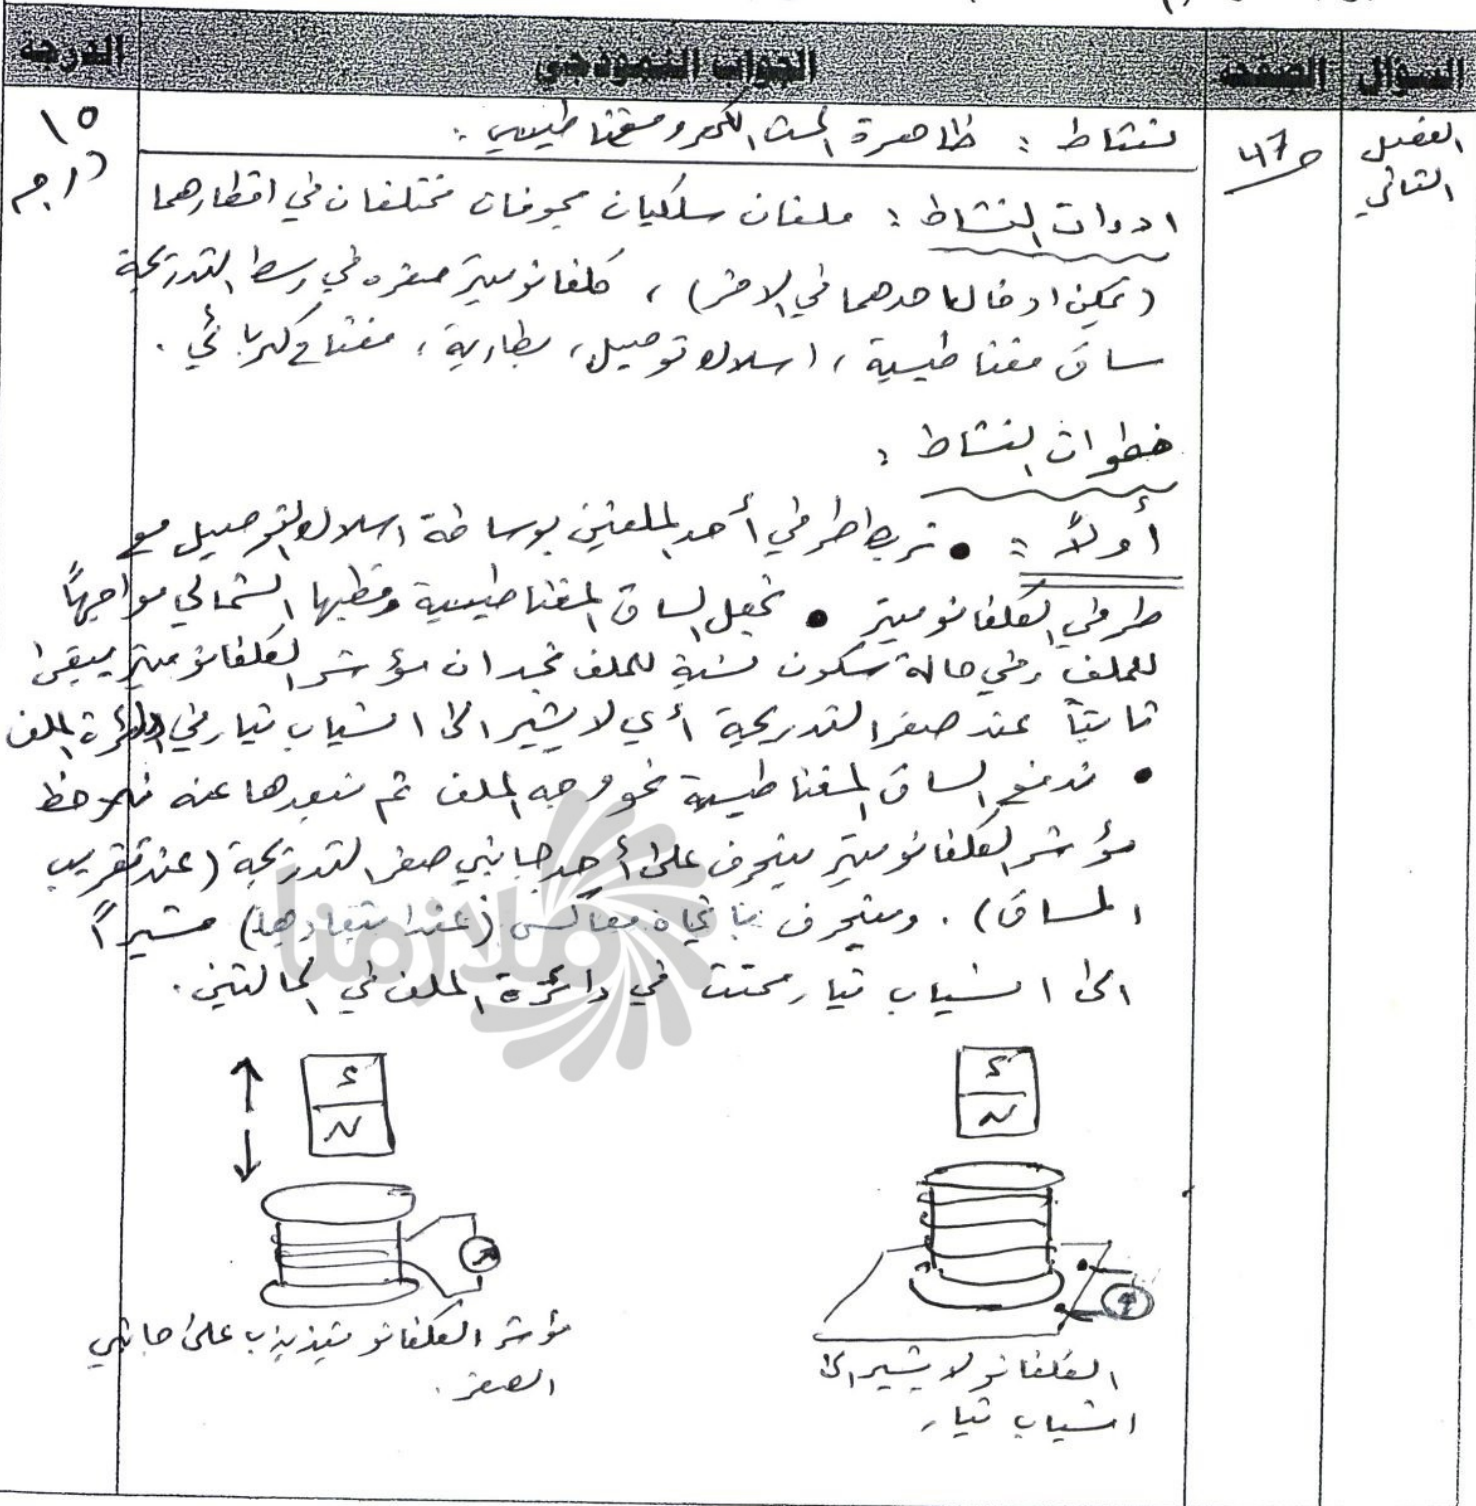 السؤال الصفحة الجواب النموذجي الدرجة
الفصل الثاني
ص47
١٥ درجة
نشاط : ظاهرة الحث الكهرومغناطيسي :
ادوات النشاط : ملفان سلكيان مجوفان مختلفان في اقطارهما
(يمكن ادخال احدهما في الاخر) ، كلفانوميتر صفره في وسط التدريجة
ساق مغناطيسية ، اسلاك توصيل ، بطارية ، مفتاح كهربائي .
خطوات النشاط :
أولاً : • نربط طرفي أحد الملفين بوساطة اسلاك التوصيل مع
طرفي الكلفانوميتر • نجعل الساق المغناطيسية وقطبها الشمالي مواجهاً
للملف وفي حالة سكون نسبة للملف نجد ان مؤشر الكلفانوميتر يبقى
ثابتاً عند صفر التدريجة أي لا يشير الى انسياب تيار في دائرة الملف
• ندفع الساق المغناطيسية نحو وجه الملف ثم نبعدها عنه نلاحظ
مؤشر الكلفانوميتر ينحرف على أحد جانبي صفر التدريجة (عند تقريب
الساق) . وينحرف باتجاه معاكس (عند ابتعادها) مشيراً
الى انسياب تيار محتث في دائرة الملف في الحالتين .
ملازمنا
S
N
S
N
الكلفانو لا يشير الى
انسياب تيار
مؤشر الكلفانو يتذبذب على جانبي
الصفر .